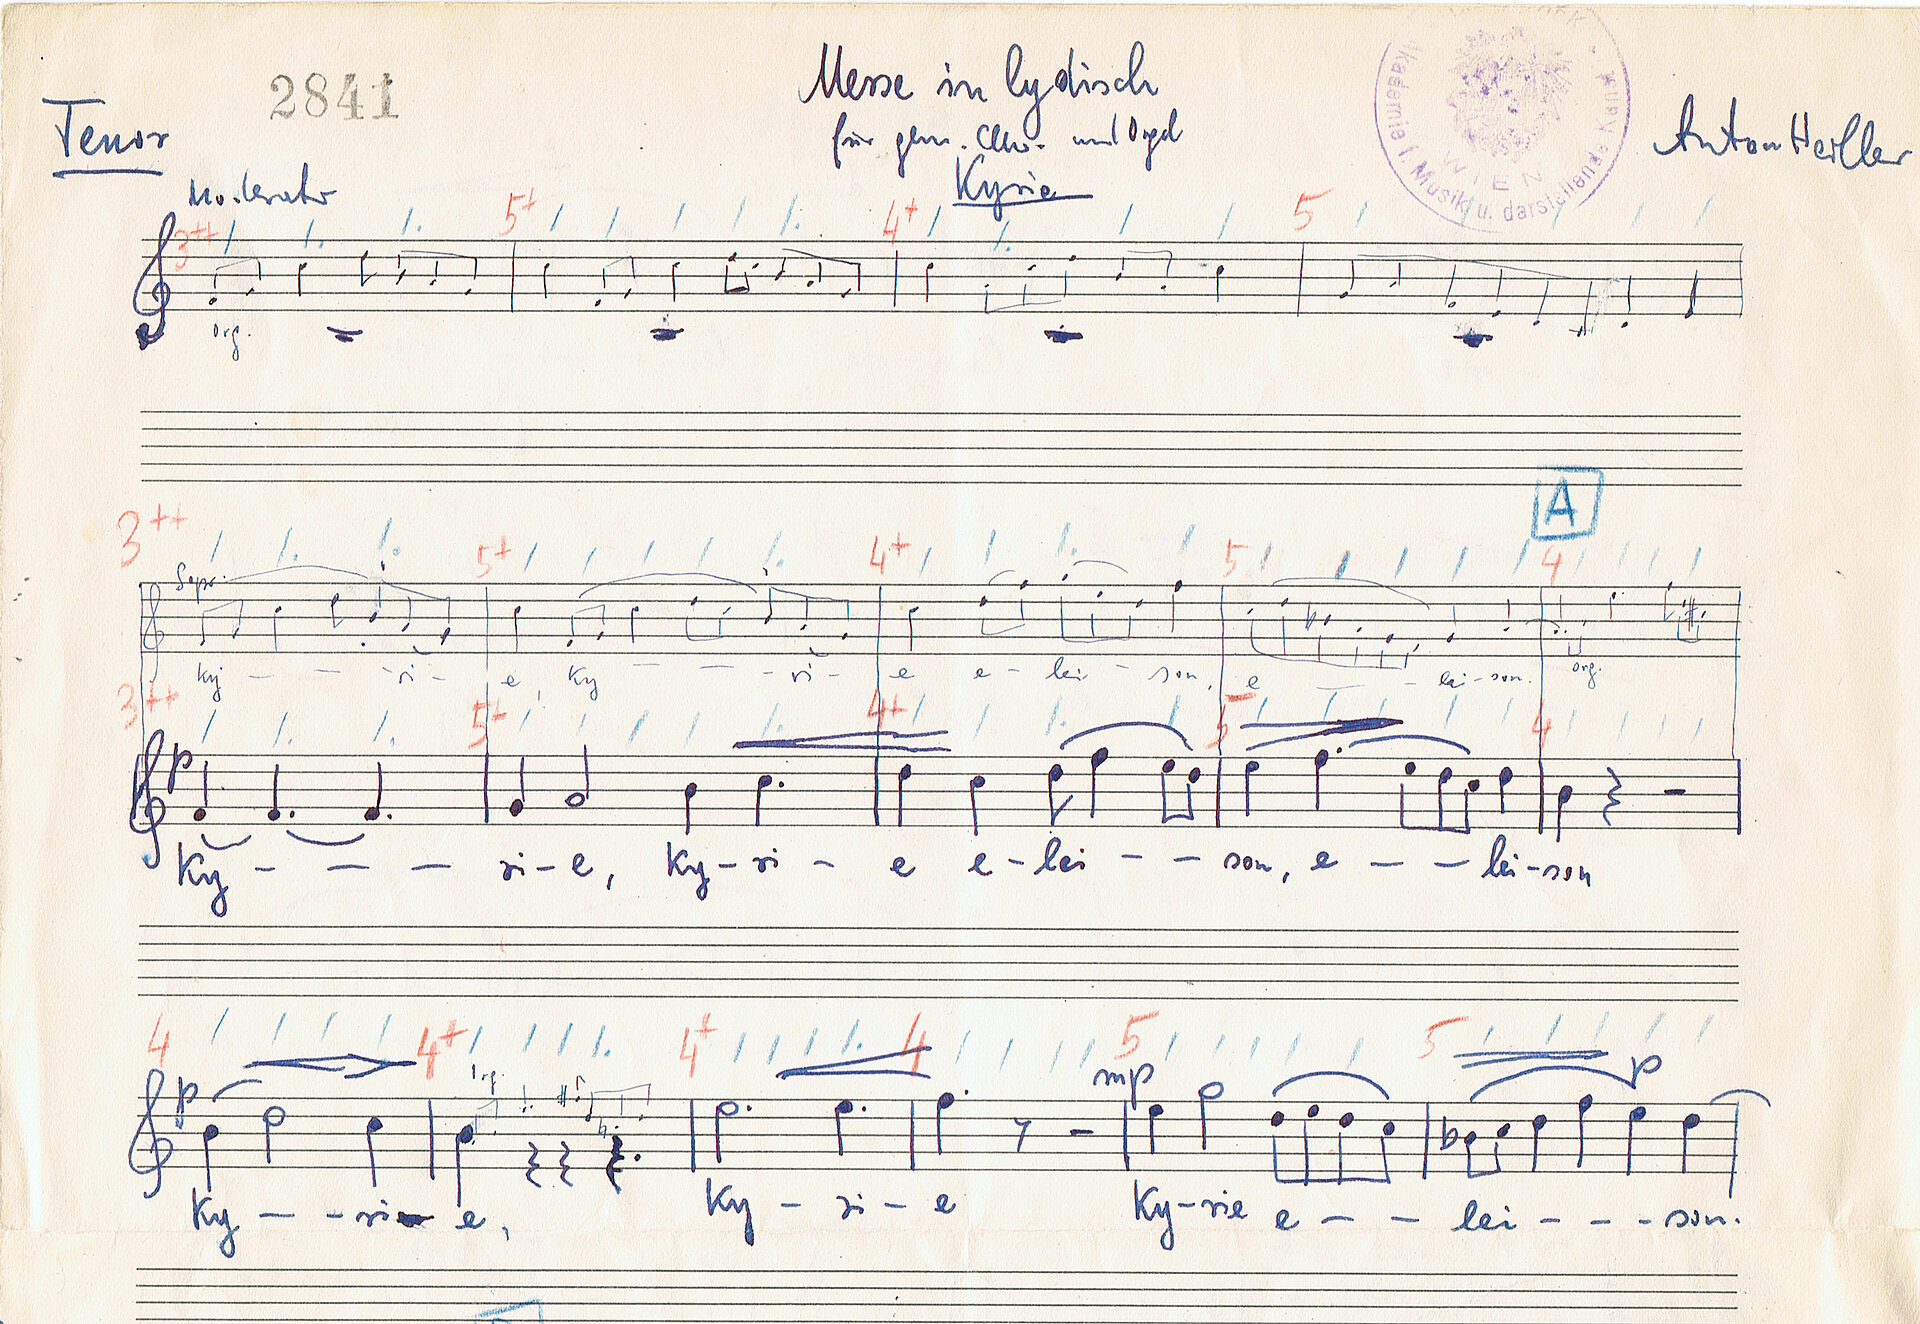 2841
Messe in lydisch
für gem. Chor und Orgel
Tenor
Anton Heiller
Akademie f. Musik u. darstellende Kunst
WIEN
Moderato
Kyrie
3++ 5+ 4+ 5
org.
A
3++ 5+ 4+ 5 4
Sopr.
Ky - - ri - e, Ky - - ri - e e - lei - son, e - - lei - son.
org.
3++ 5+ 4+ 5 4
p
Ky - - - ri - e, Ky - ri - e e - lei - - son, e - - lei - son
4 4+ 4+ 4 5 5
p Org. mp p
Ky - - ri - e, Ky - ri - e Ky - rie e - - lei - - - son.